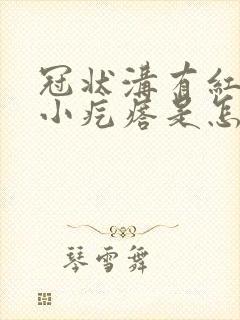 冠状溝有紅
小疙瘩是怎
琴雪舞